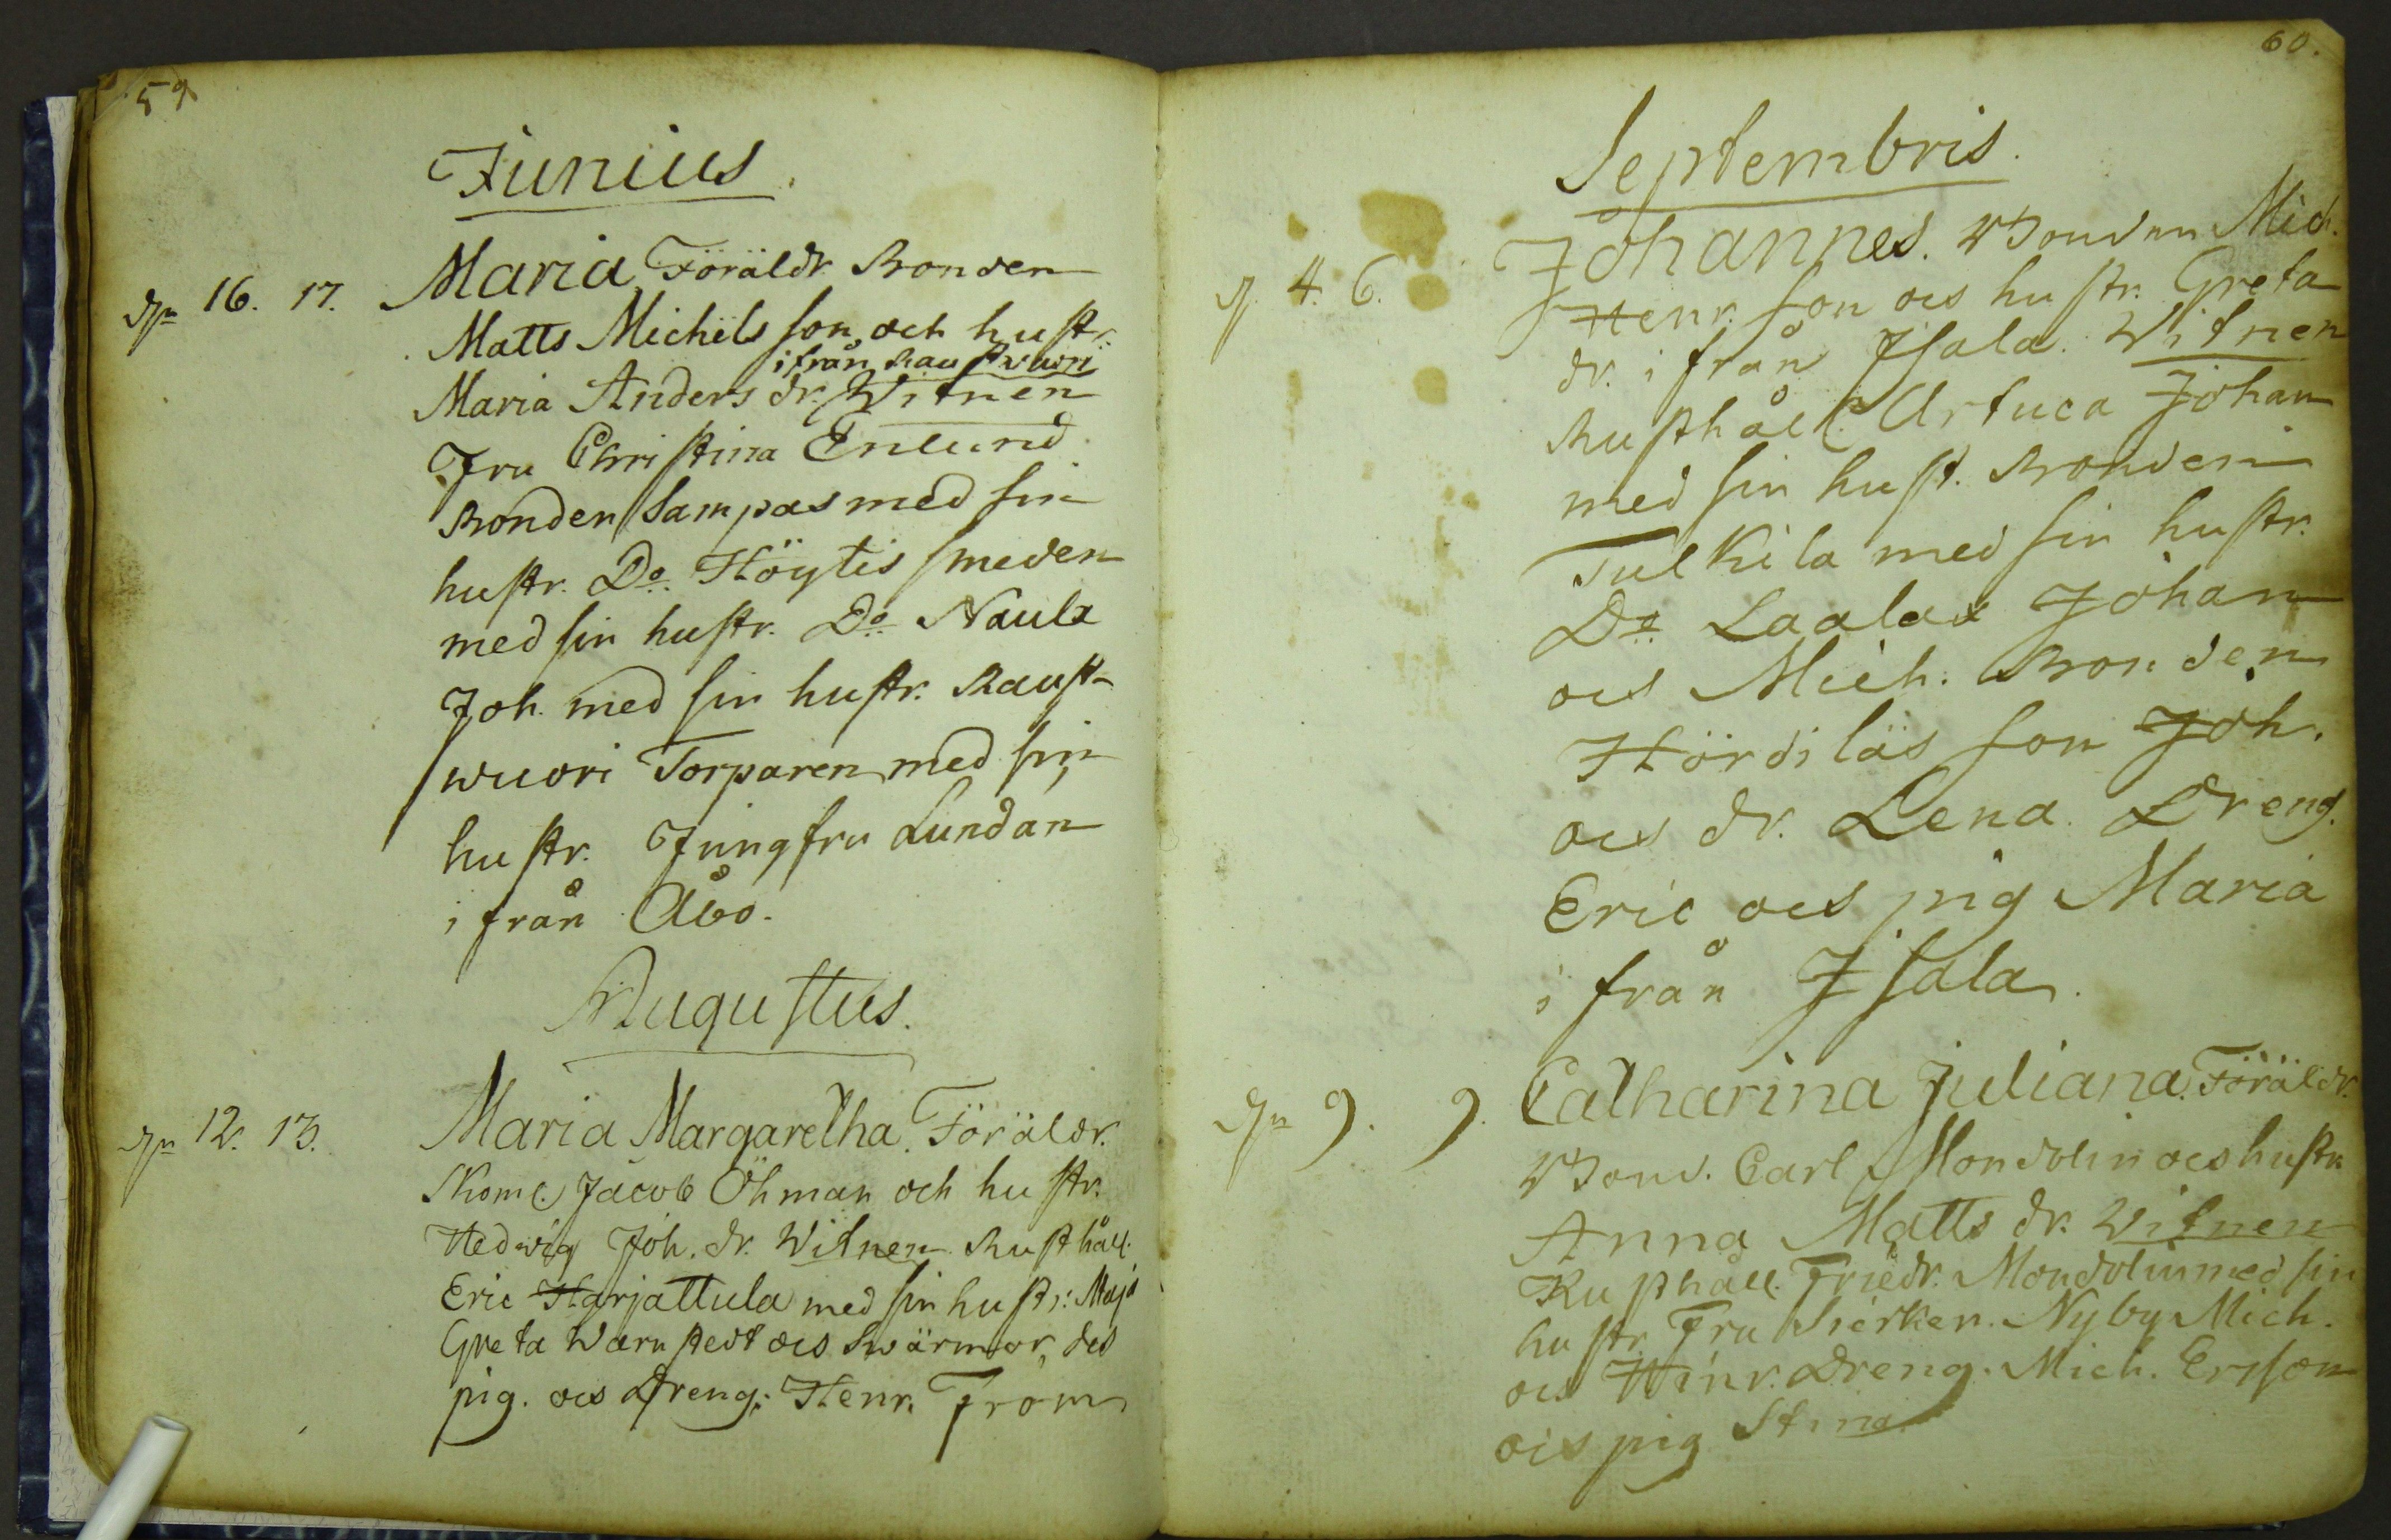 59
Junius.
dn 16. 17. Maria Föräldr. Bonden
Matts Michels son och hustr.
ifrån Raustvuori
Maria Anders dr. Witnen
Fru Christina Enlund
Bonden Sampas med sin
hustr. Do. Höytis smeden
med sin hustr. Do Naula
Joh. med sin hustr. Raust-
wuori Torparen med sin
hustr. Jungfru Lundan
ifrån Åbo.
Augustus.
dn 12. 13. Maria Margaretha. Föräldr.
Skom. Jacob Öhman och hustr.
Hedwig Joh. dr. Witnen Rusthåll.
Eric Harjattula med sin hustr: Maja
Greta Warnstedt ocs Swärmor, des
pig. ocs Dreng: Henr. From
60.
Septembris.
d. 4. 6. Johannes. Bonden Mich.
Henr. son ocs hustr. Greta
dr. ifrån Isala. Witnen
Rusthåll. Artuca Johan
med sin hust. Bonden
Tulkila med sin hustr.
Do Laalax Johan
ocs Mich. Bonden
Hördiläs son Joh.
ocs dr. Lena. Dreng.
Eric ocs pig Maria
ifrån Isala.
dn 9. 9. Catharina Juliana. Föräldr.
Bond. Carl Mondolin ocs hustr.
Anna Matts dr. Witnen
Rusthåll. Friedr. Mondolin med sin
hustr. Fru Sierken. Nyby Mich.
ocs Hinr. Dreng. Mich. Ersson
ocs pig Stina